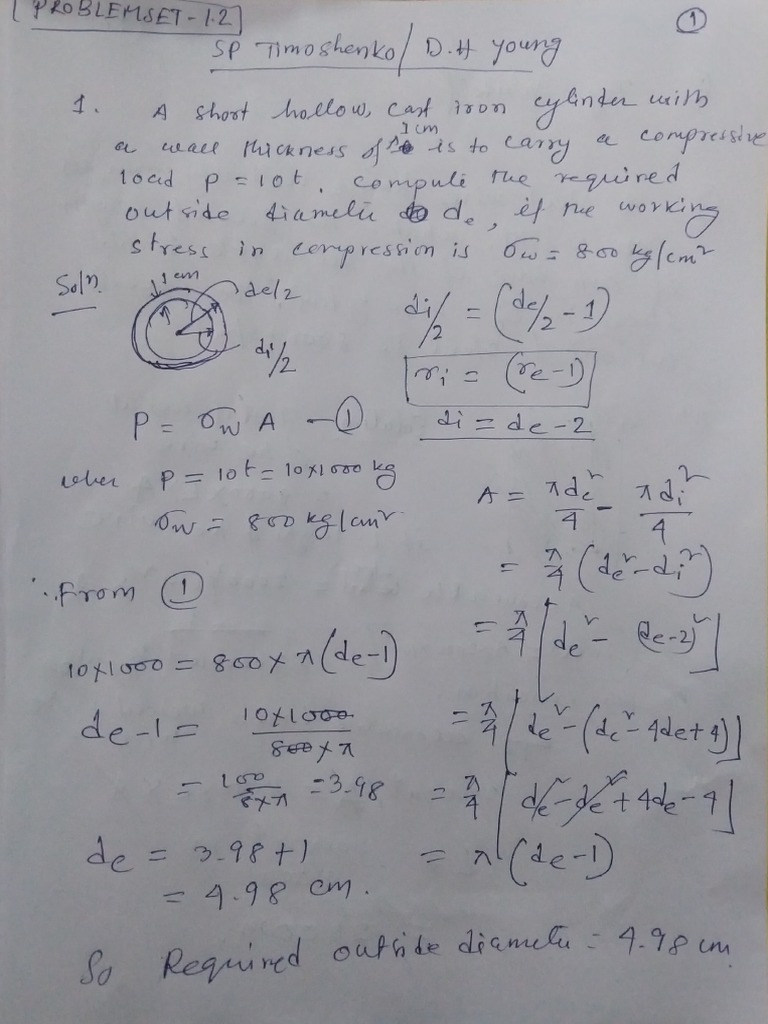 PROBLEMSET-1.2
①
SP Timoshenko/ D.H Young
1. A short hollow, cast iron cylinder with
a wall thickness of 1cm is to carry a compressive
load P = 10t. compute the required
outside diameter de, if the working
stress in compression is σw = 800 kg/cm²
Soln.
1cm
de/2
di/2
di/2 = (de/2 - 1)
ri = (re-1)
di = de-2
P = σw A - ①
when P = 10t = 10×1000 kg
σw = 800 kg/cm²
A = πde²/4 - πdi²/4
= π/4 (de²-di²)
= π/4 [de² - (de-2)²]
= π/4 [de² - (de² - 4de+4)]
= π/4 [de² - de² + 4de - 4]
= π (de-1)
∴ From ①
10×1000 = 800 × π(de-1)
de-1 = 10×1000/800×π
= 100/8×π = 3.98
de = 3.98+1
= 4.98 cm.
So Required outside diameter = 4.98 cm.